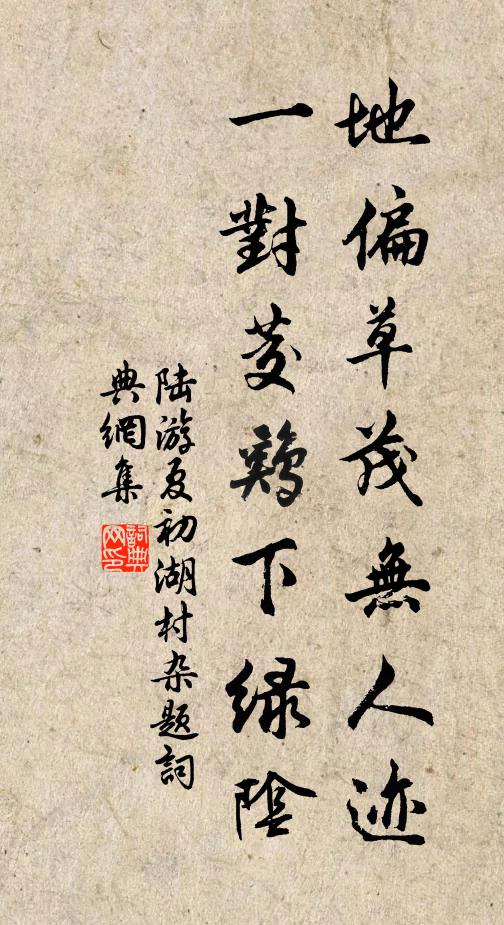 地偏草茂無人迹
一對茭鷄下緑陰
陆游夏初湖村杂题詞
典網集
詞典网印